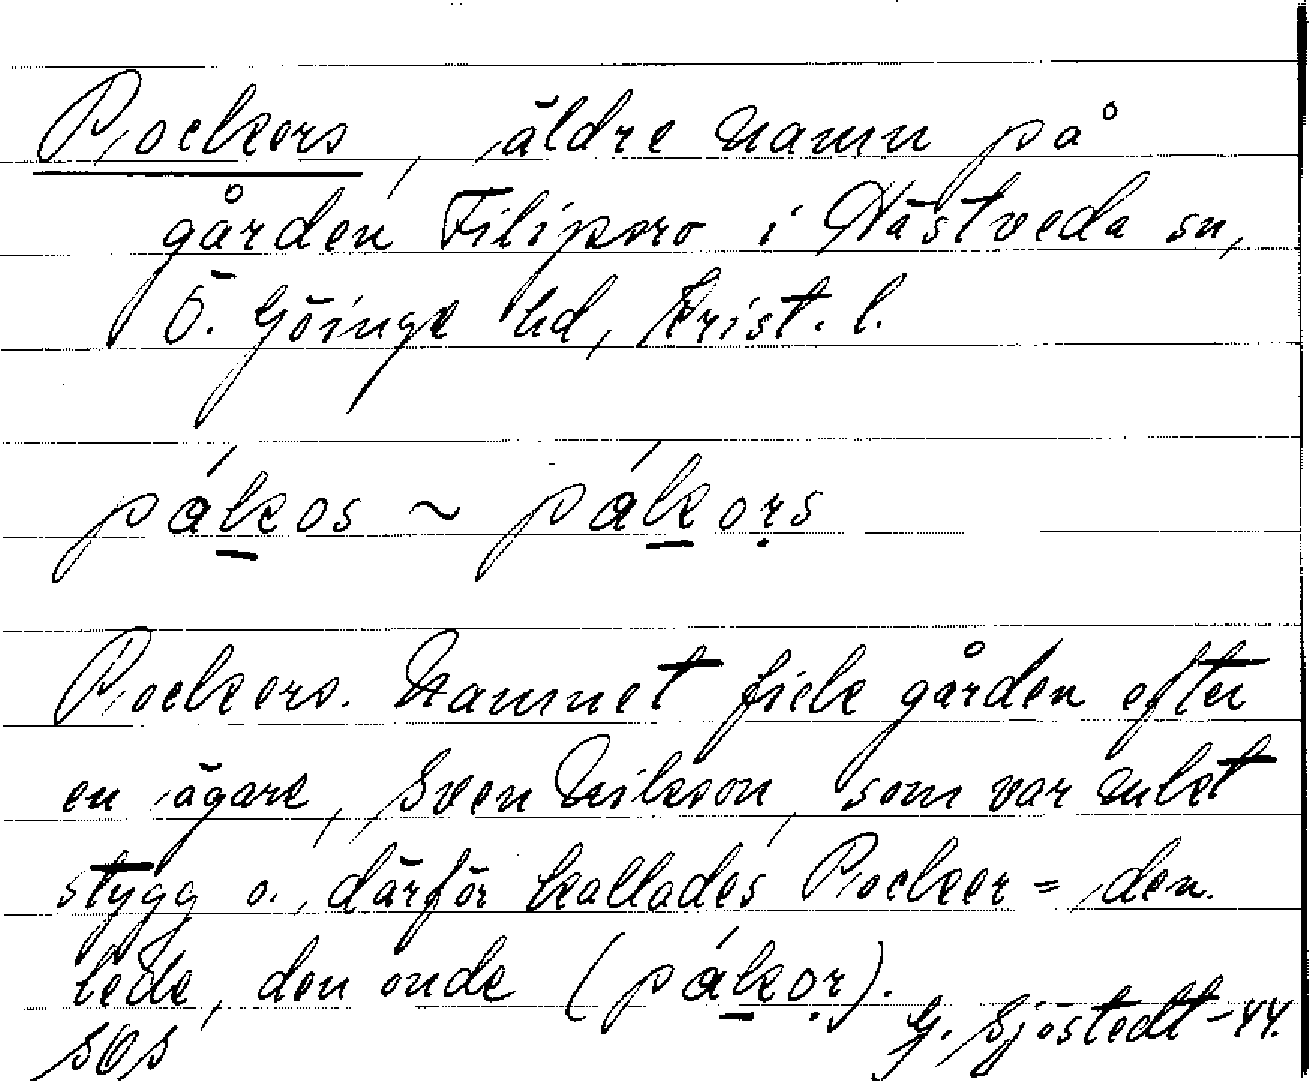 Pockers, äldre namn på
gården Filipsro i Hästveda sn,
Ö. Göinge hd, Krist. l.
pákos ~ pákoṛs
Pockers. Namnet fick gården efter
en ägare, Sven Nilsson, som var mket
stygg o. därför kallades Pocker = den
lede, den onde (pákoṛ).
SOS G. Sjöstedt -44.